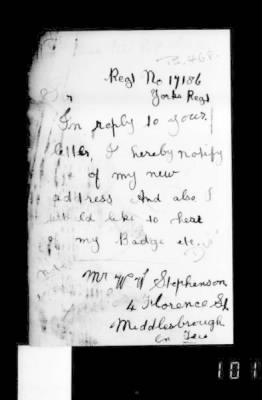 Regt No 17186
Yorks Regt
Sir
In reply to your
letter, I hereby notify
of my new
address And also I
would like to hear
my Badge etc,
Mr W W Stephenson
4 Florence St
Middlesbrough
on Tees
101